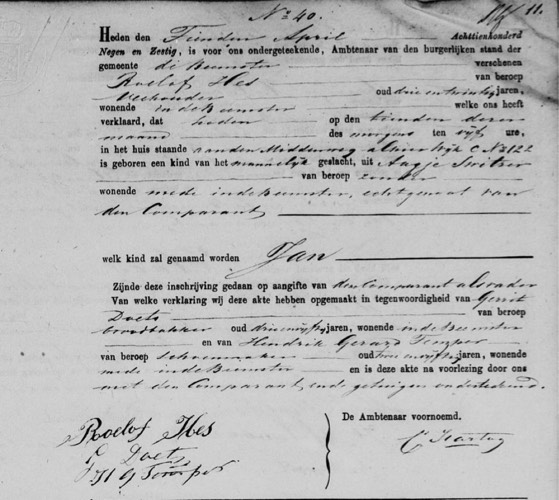 No 40.
11.
Heden den Tienden April Achttienhonderd
Negen en Zestig, is voor ons ondergeteekende, Ambtenaar van den burgerlijken stand der
gemeente de Beemster verschenen
Roelof Hes van beroep
Veehouder oud drie en twintig jaren,
wonende in de Beemster welke ons heeft
verklaard, dat heden op den tienden dezer
maand des morgens ten vijf ure,
in het huis staande aan den Middenweg alhier Wijk C No 122
is geboren een kind van het mannelijk geslacht, uit Aagje Switser
van beroep zonder
wonende mede in de Beemster, echtgenoot van
den Comparant,
welk kind zal genaamd worden Jan
Zijnde deze inschrijving gedaan op aangifte van den Comparant als vader
Van welke verklaring wij deze akte hebben opgemaakt in tegenwoordigheid van Gerrit
Doets van beroep
broodbakker oud jaren, wonende in de Beemster
en van Hendrik Gerard Temper
van beroep schoenmaker oud jaren, wonende
mede in de Beemster en is deze akte na voorlezing door ons
met den Comparant, en de getuigen onderteekend.
De Ambtenaar voornoemd.
Roelof Hes
G Doets
H G Temper